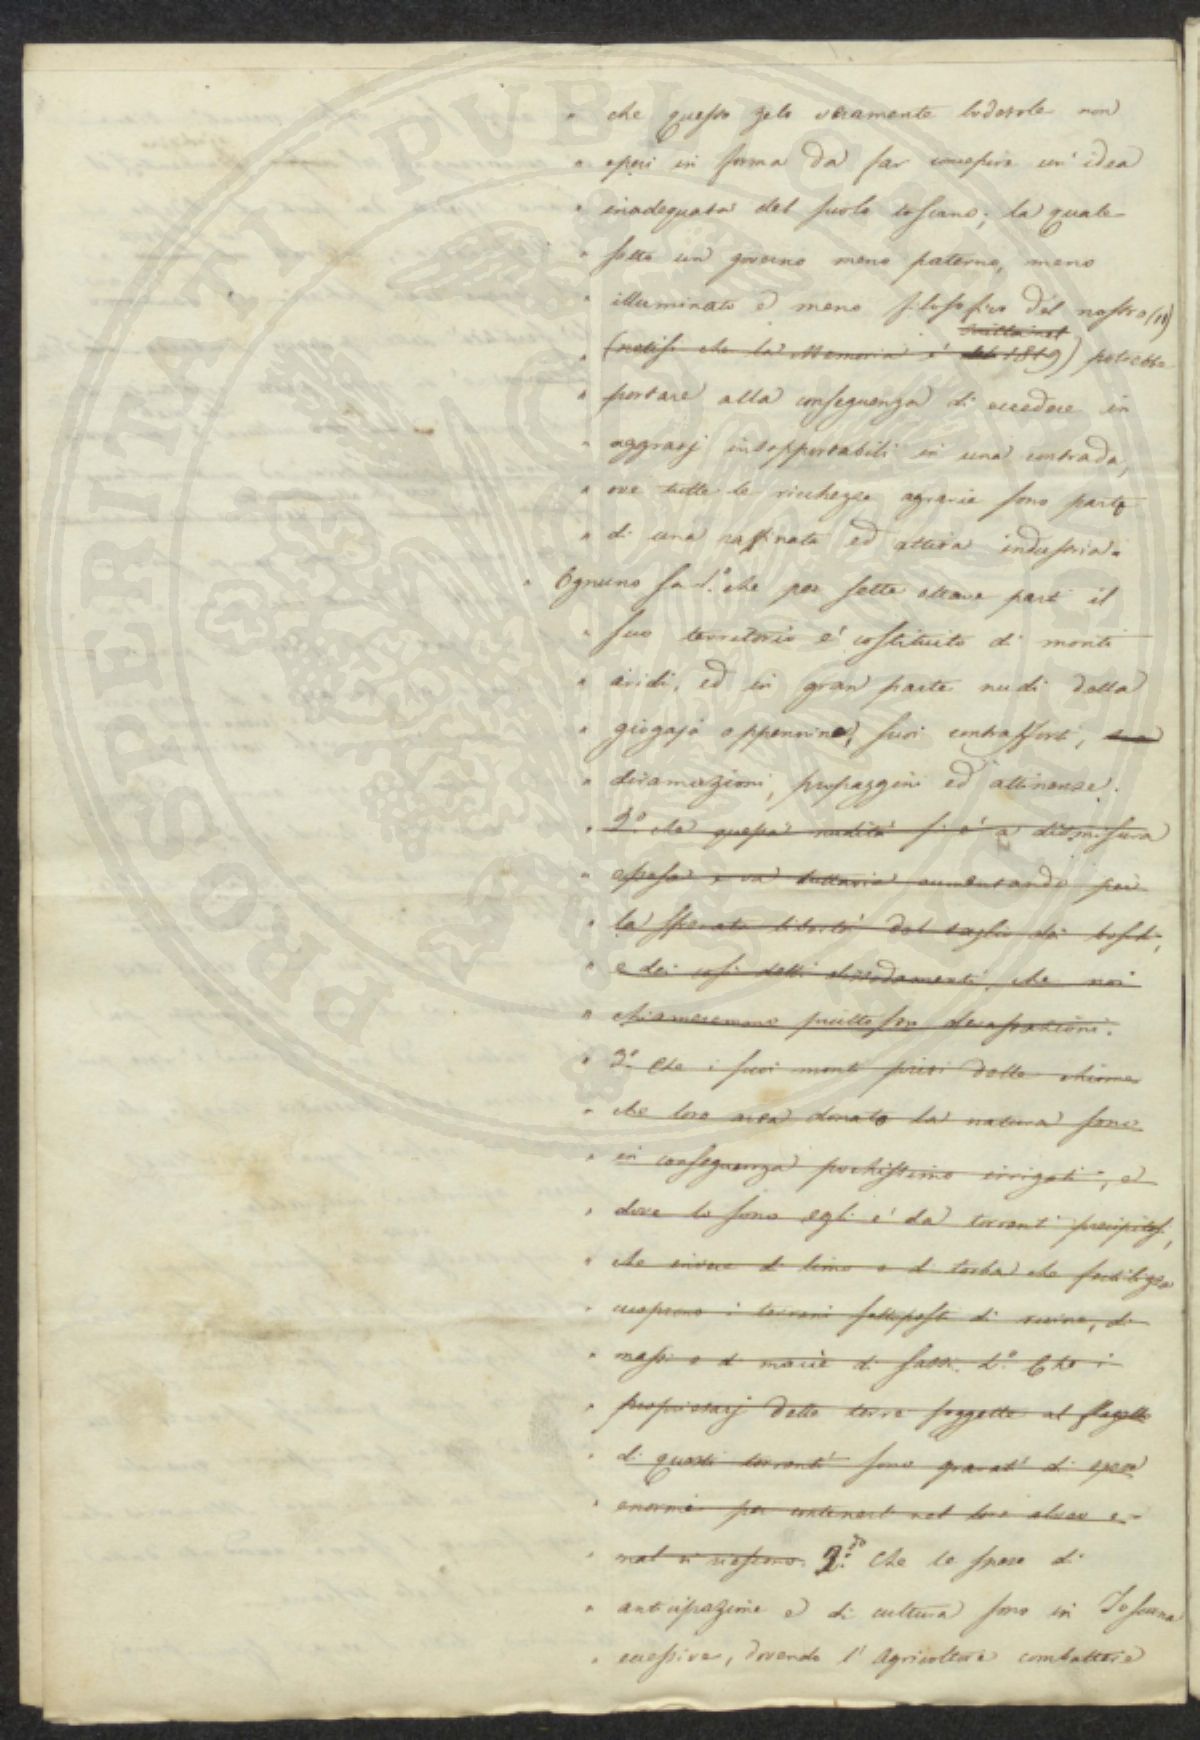 " che questo zelo veramente lodevole non
" operi in forma da far concepire un' idea
" inadeguata del suolo toscano; la quale
" sotto un governo meno paterno, meno
" illuminato e meno filosofico del nostro (18)
scritta nel
" (notisi che la Memoria è del 1819) potrebbe
" portare alla conseguenza di eccedere in
" aggravj insopportabili in una contrada,
" ove tutte le ricchezze agrarie sono parto
" di una raffinata ed attiva industria.
" Ognuno sa 1.° che per sette ottave parti il
" suo territorio è costituito di monti
" aridi, ed in gran parte nudi della
" giogaja appennina, suoi contrafforti,
" diramazioni, propaggini ed attinenze.
" 2.° che questa nudità si è a dismisura
" estesa, e va tuttavia aumentando per
" la sfrenata libertà del taglio dei boschi,
" e dei così detti dissodamenti, che noi
" chiameremmo piuttosto devastazioni.
" 3.° Che i suoi monti privi delle chiome
" che loro avea donato la natura sono
" in conseguenza pochissimo irrigati, e
" dove lo sono egli è da torrenti precipitosi,
" che invece di limo e di torba che fertilizza
" cuoprono i terreni sottoposti di rovine, di
" massi e di macie di sassi. 4.° Che i
" proprietarj delle terre soggette al flagello
" di questi torrenti sono gravati di spese
" enormi per contenerli nel loro alveo e
" mal vi riescono. 2.do Che le spese di
" anticipazione e di cultura sono in Toscana
" eccessive, dovendo l' Agricoltore combattere
PROSPERITATI PUBLICAE